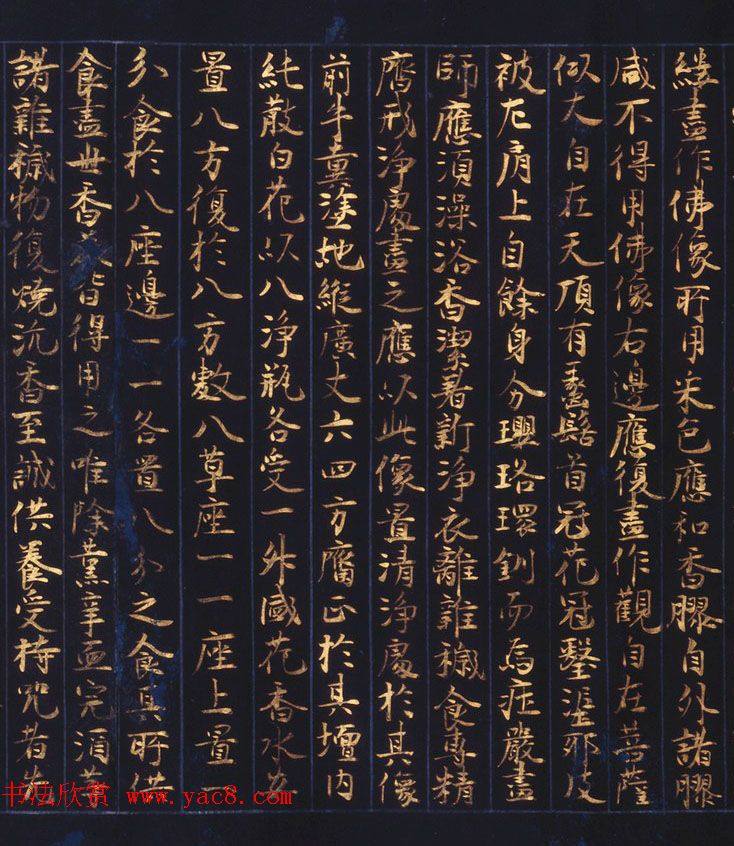 縷畫作佛像所用采色應和香膠自外諸膠
咸不得用佛像右邊應復畫作觀自在菩薩
似大自在天頂有蠡髻首冠花冠瑿埿耶皮
被左肩上自餘身分瓔珞環釧而為莊嚴畫
師應須澡浴香潔著新淨衣離雜穢食專精
齋戒淨處畫之應以此像置清淨處於其像
前牛糞塗地縱廣丈六四方庸正於其壇內
純散白花以八淨瓶各受一升盛花香水安
置八方復於八方敷八草座一一座上置一
分食於八座邊一一各置八分之食其所供
食盡世香美皆得用之唯除薰辛血完酒等
諸雜穢物復燒沉香至誠供養受持咒者
书法欣赏 www.yac8.com